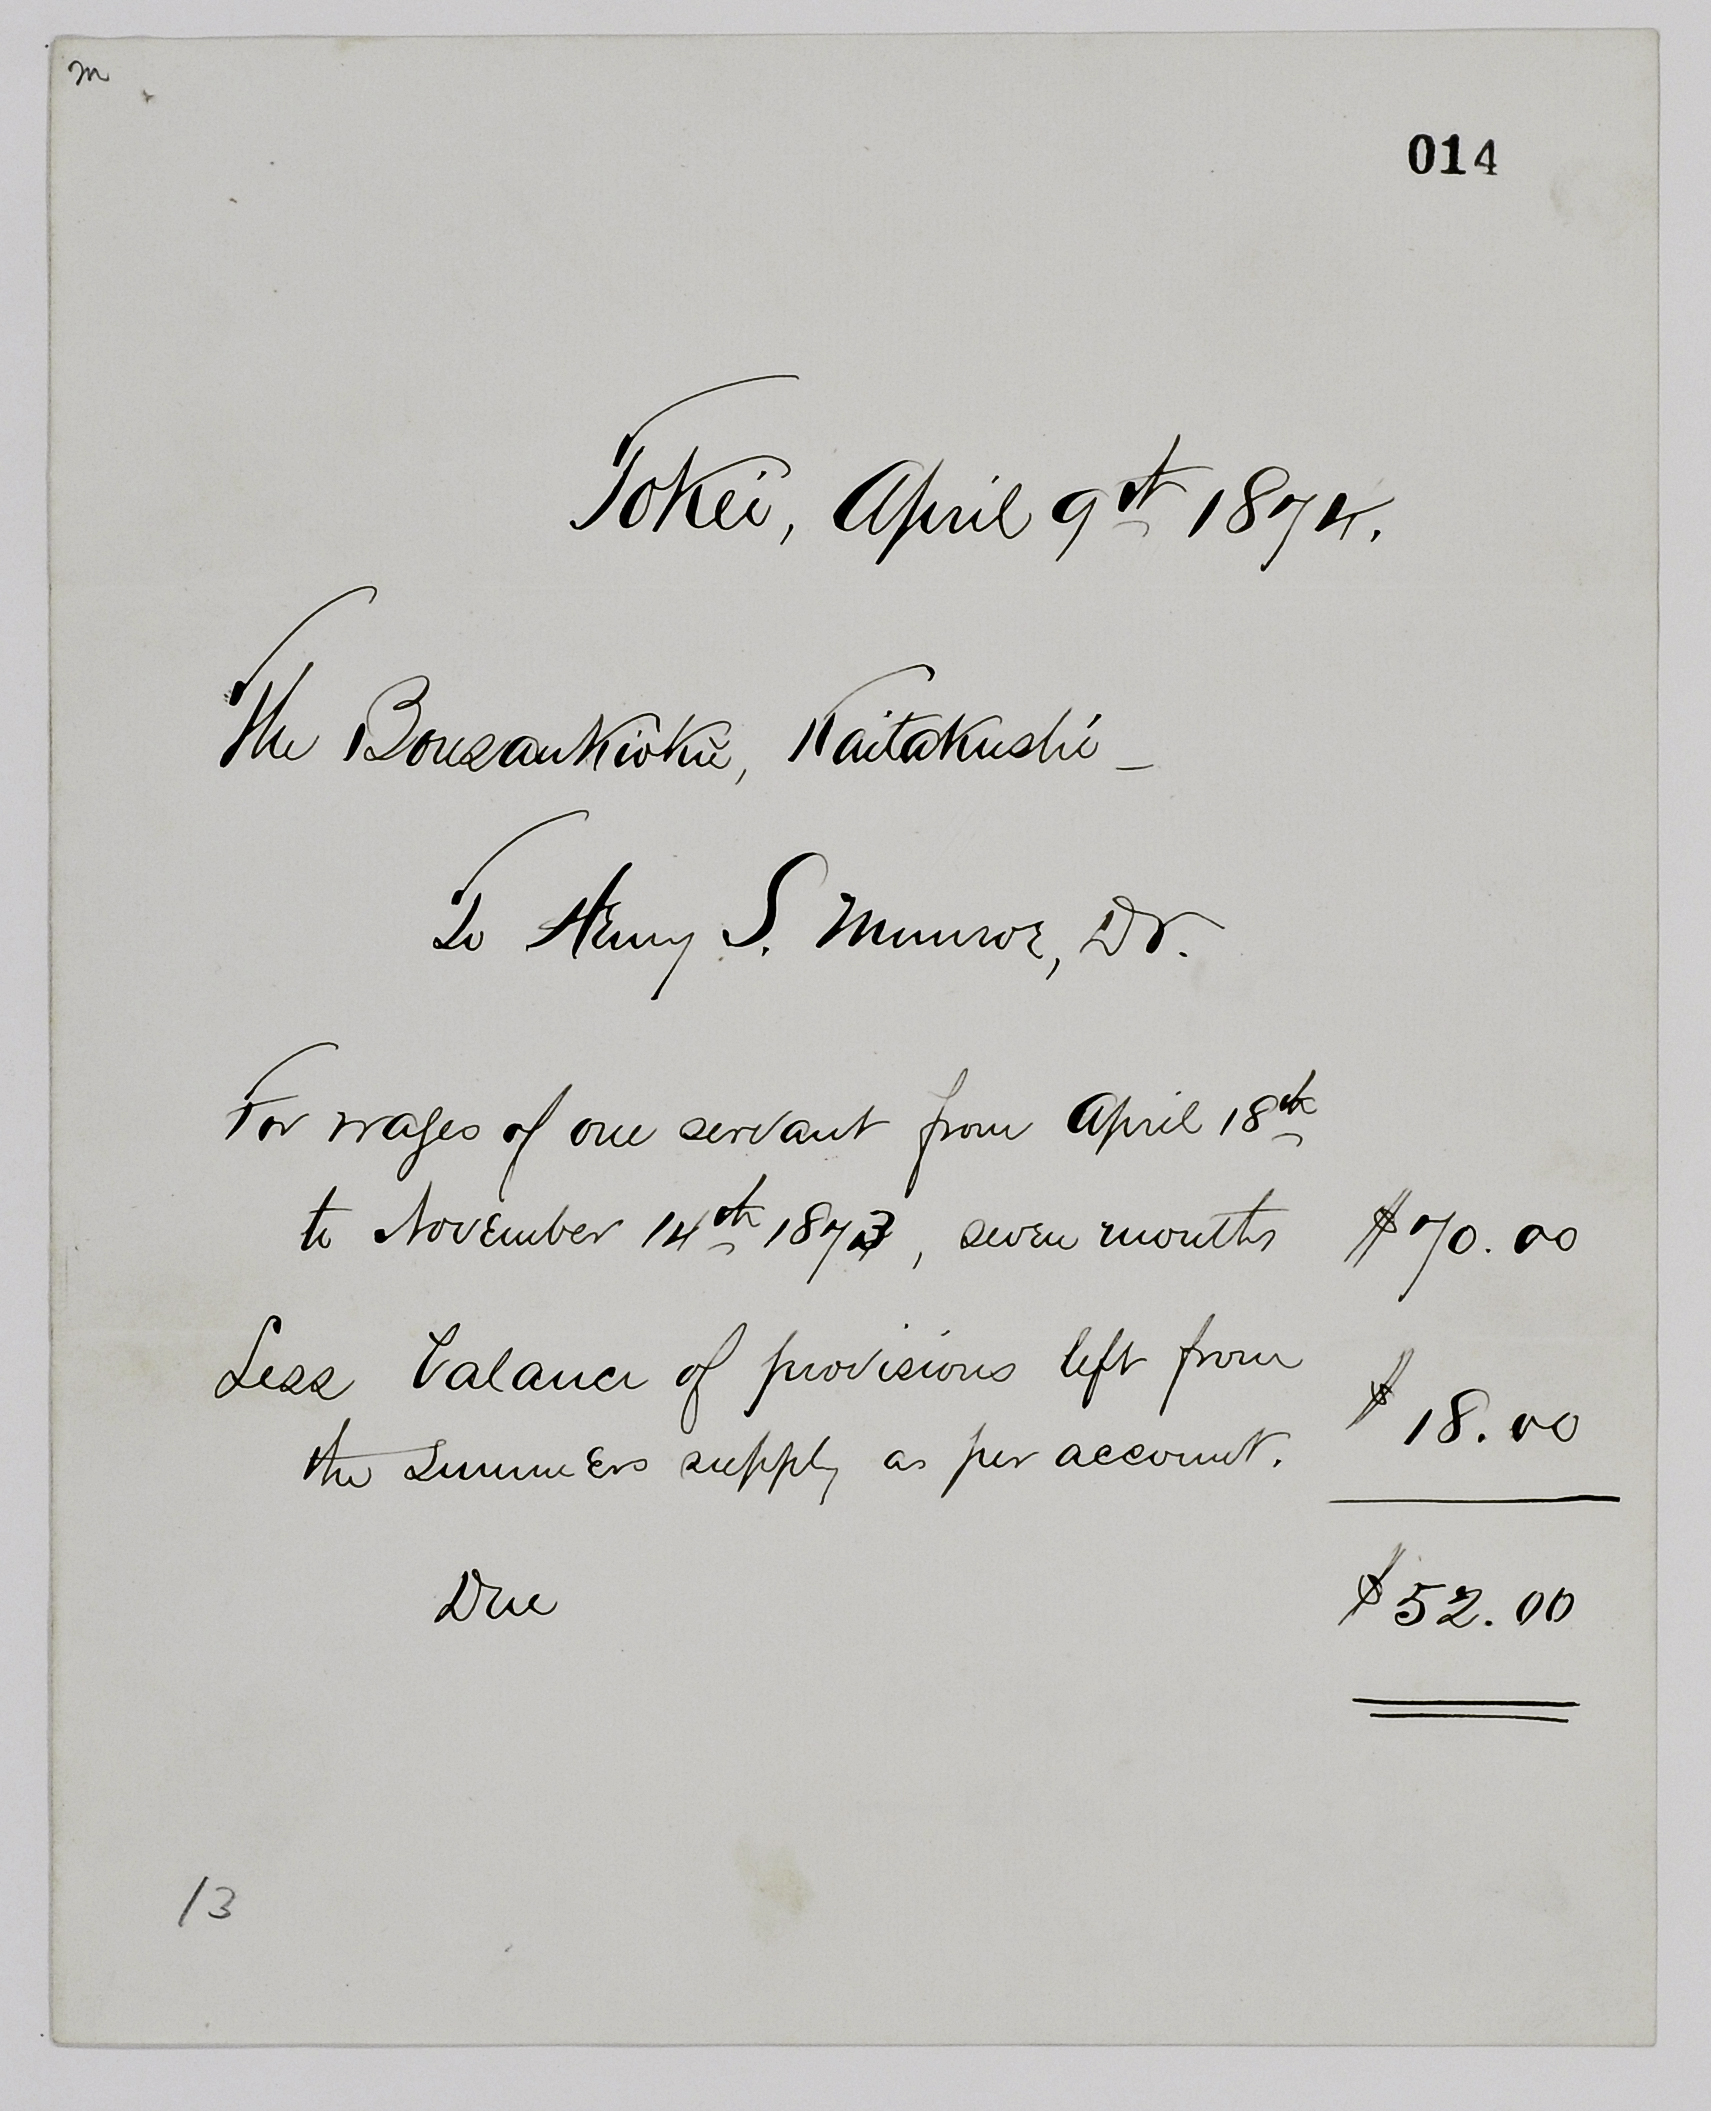 m
014
Tokei, April 9th 1874.
The Bouzankioku, Kaitakushi _
To Henry S. Munroe, Dr.
For wages of one servant from April 18th
to November 14th 1873, seven months $70.00
Less balance of provisions left from
the summers supply as per account. $18.00
Due $52.00
13